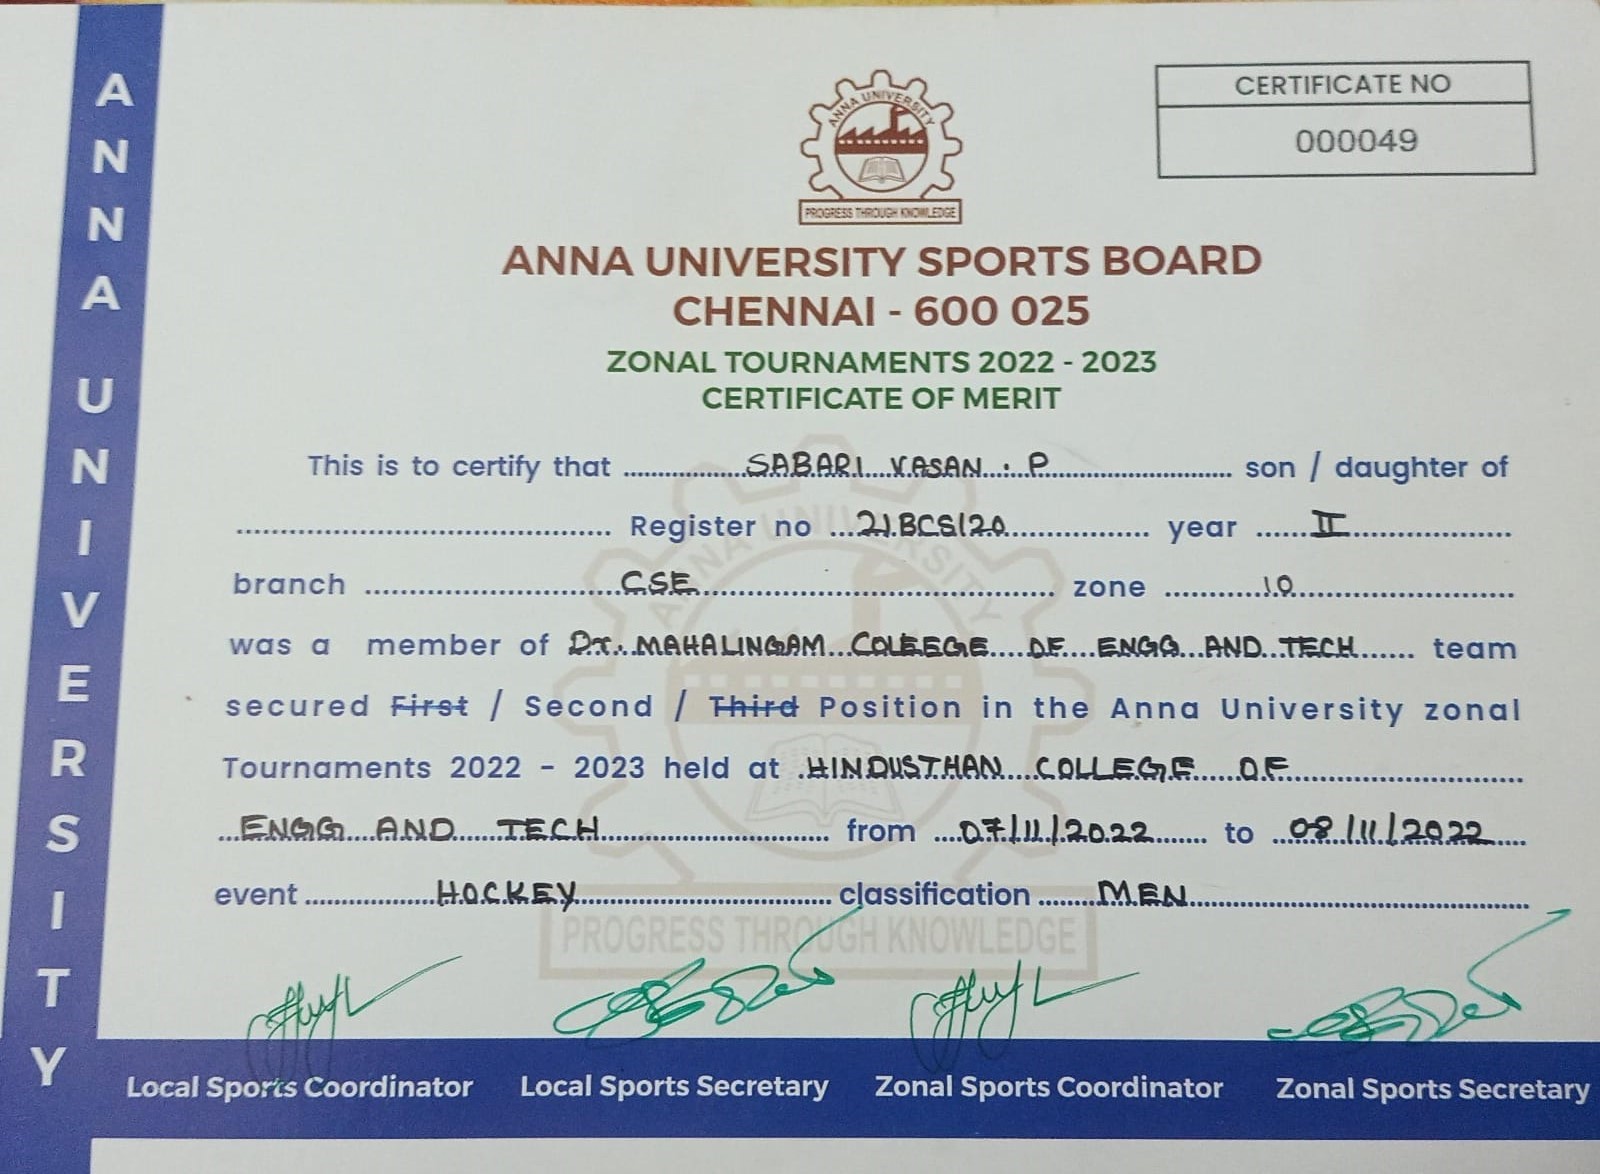 ANNA UNIVERSITY
ANNA UNIVERSITY
PROGRESS THROUGH KNOWLEDGE
CERTIFICATE NO
000049
ANNA UNIVERSITY SPORTS BOARD
CHENNAI - 600 025
ZONAL TOURNAMENTS 2022 - 2023
CERTIFICATE OF MERIT
This is to certify that SABARI VASAN . P son / daughter of
Register no 21BCS120 year II
branch CSE zone 10
was a member of Dr. MAHALINGAM COLEEGE OF ENGG AND TECH team
secured First / Second / Third Position in the Anna University zonal
Tournaments 2022 - 2023 held at HINDUSTHAN COLLEGE OF
ENGG AND TECH from 07/11/2022 to 08/11/2022
event HOCKEY classification MEN
ANNA UNIVERSITY
PROGRESS THROUGH KNOWLEDGE
Local Sports Coordinator Local Sports Secretary Zonal Sports Coordinator Zonal Sports Secretary